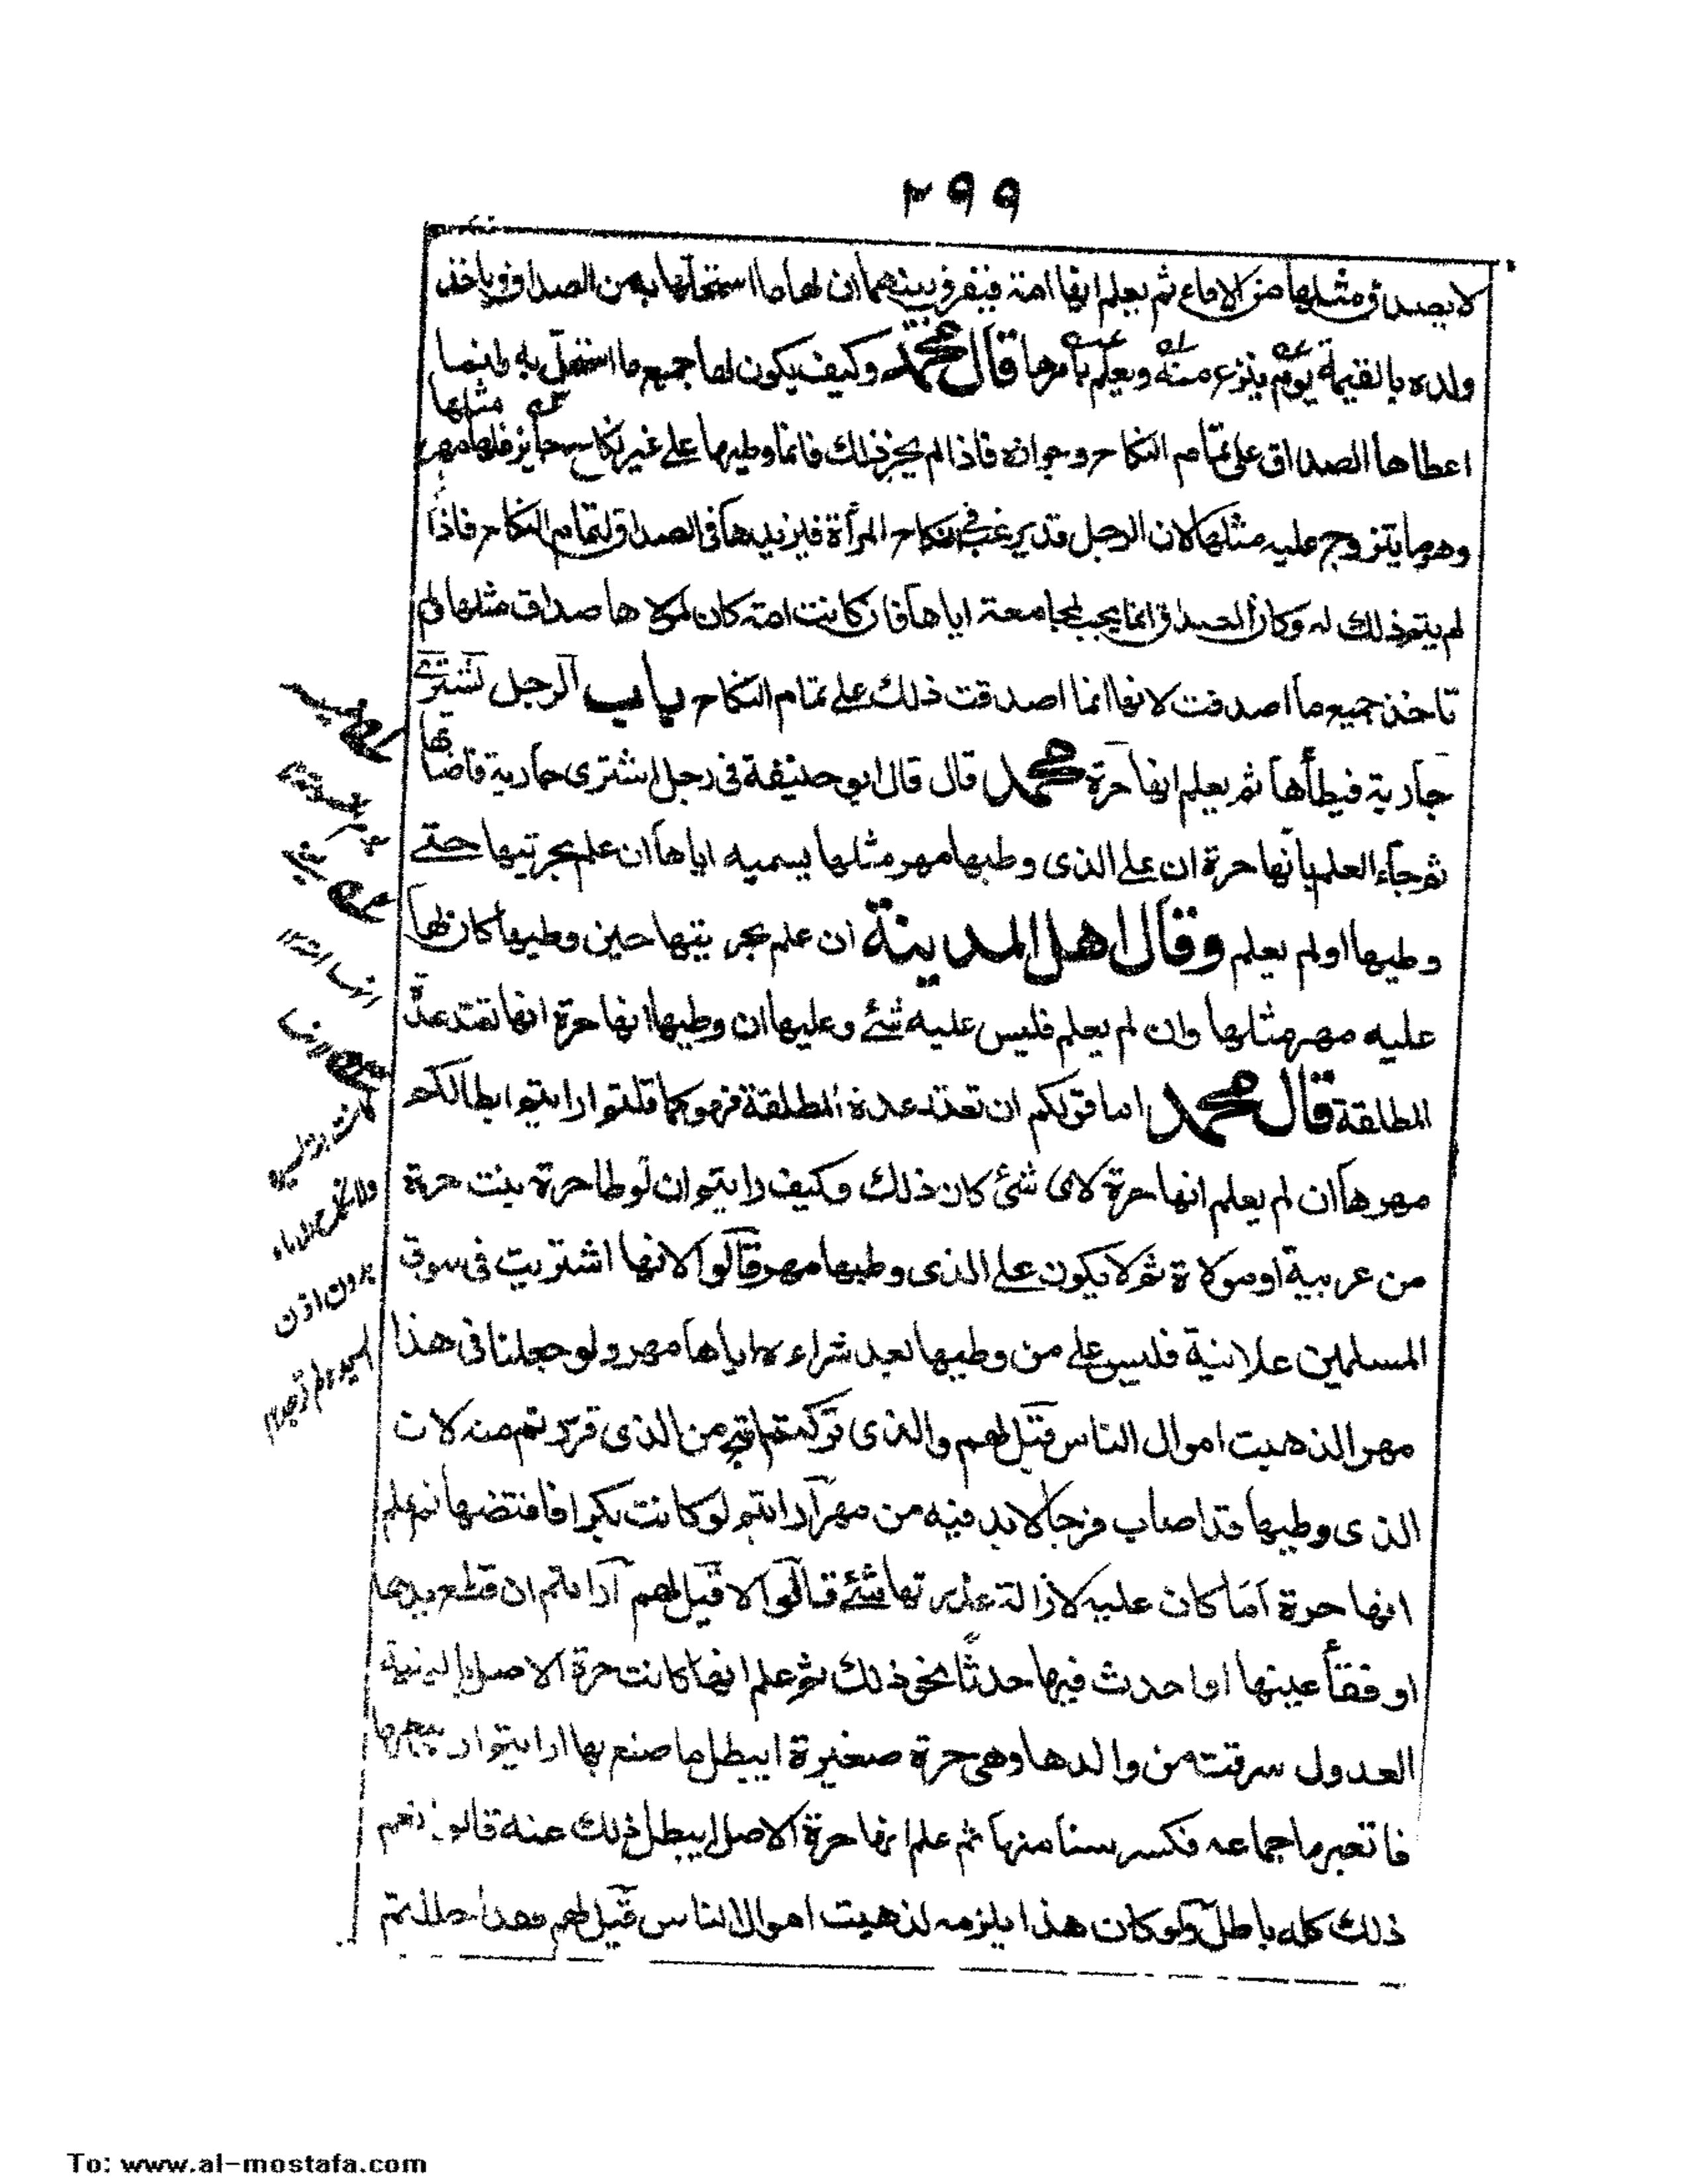 ٢٩٩
لا يصدق مثلها من الاماء ثم يعلم انها امة فيفرق بينهما ان لها ما استحلها به من الصداق وياخذ
ولده بالقيمة يوم ينزع منه ويعلم بامرها قال محمد وكيف يكون لها جميع ما استحل به وانما
اعطاها الصداق على تمام النكاح وجوازه فاذا لم يجز ذلك فانما وطيها على غير نكاح جايز فلها مهر مثلها
وهو ما يتزوج عليه مثلها لان الرجل قد يرغب في نكاح المرأة فيزيدها في الصداق لتمام النكاح فاذا
لم يتم ذلك له وكان الصداق انما يجب لمجامعته اياها فان كانت امة كان لمولاها صداق مثلها ولم
تاخذ جميع ما اصدقت لانها انما اصدقت ذلك على تمام النكاح باب الرجل يشترى
جارية فيطأها ثم يعلم انها حرة محمد قال قال ابو حنيفة فى رجل اشترى جارية فاصابها
ثم جاء العلم بأنها حرة ان على الذى وطيها مهر مثلها يسميه اياها ان علم بحريتها حتى
وطيها او لم يعلم وقال اهل المدينة ان علم بحريتها حين وطيها كان لها
عليه مهر مثلها وان لم يعلم فليس عليه شئ وعليها ان وطيها انها حرة انها تعتد عدة
المطلقة قال محمد اما قولكم ان تعتد عدة المطلقة فهو كما قلتم ارايتم ابطالكم
مهرها ان لم يعلم انها حرة لاى شئ كان ذلك وكيف رايتم ان توطا حرة بنت حرة
من عربية او مولاة ثم لا يكون على الذى وطيها مهر قالوا لانها اشتريت فى سوق
المسلمين علانية فليس على من وطيها بعد شراءه اياها مهر ولو جعلنا فى هذا
مهرا لذهبت اموال الناس قيل لهم والذى تركتم اقبح من الذى قررتم منه لان
الذى وطيها قد اصاب فرجا لا بد فيه من مهر آرايتم لو كانت بكرا فافتضها ثم علم
انها حرة اما كان عليه لازالة عذرتها شئ قالوا لا قيل لهم آرايتم ان قطع يدها
او فقأ عينها او احدث فيها حدثا نحو ذلك ثم علم انها كانت حرة الاصل بالبينة
العدول سرقت من والدها وهى حرة صغيرة ايبطل ما صنع بها ارايتم ان
فكسر سنا منها ثم علم انها حرة الاصل ايبطل ذلك عنه قالوا نعم
ذلك كله باطل ولو كان هذا يلزمه لذهبت اموال الناس قيل لهم فقد
بدون اذن
To: www.al-mostafa.com